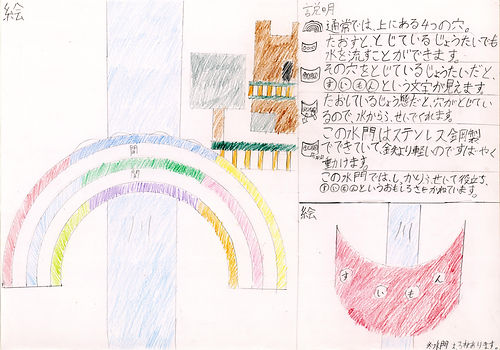 絵
説明
通常では、上にある4つの穴。
たおすと、とじているじょうたいでも
水を流すことができます。
その穴をとじているじょうたいだと、
すいもんという文字が見えます
たおしているじょう態だと、穴がとじてい
るので、水からふせいでくれます。
この水門はステンレス製
でできていて、鉄より軽いので、すばやく
動けます。
この水門では、しっかりふせいで役立ち、
すいもんというおもしろさもかねています。
開
閉
川
絵
川
すいもん
※水門